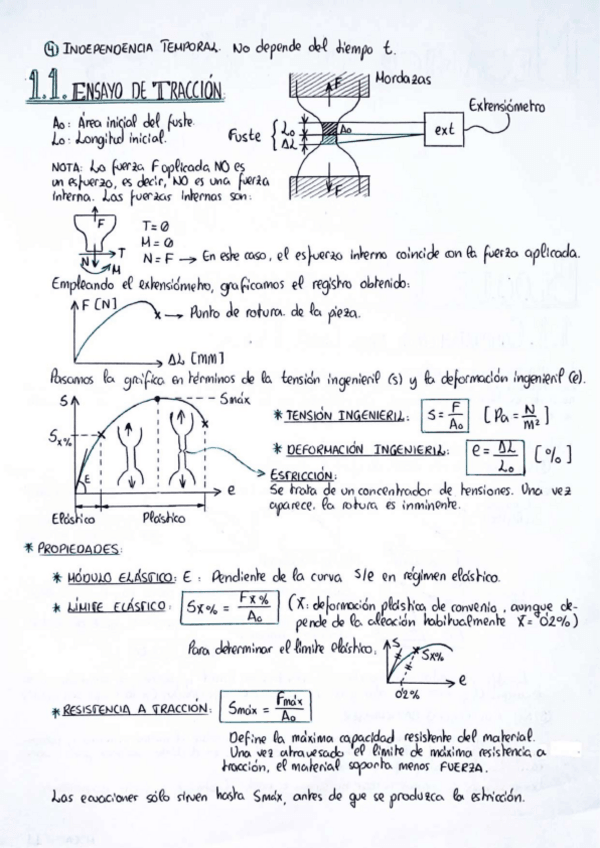 ④ INDEPENDENCIA TEMPORAL. No depende del tiempo t.
1.1. ENSAYO DE TRACCIÓN.
Mordazas
F
Extensiómetro
A₀: Área inicial del fuste.
L₀: Longitud inicial.
Fuste { L₀ ΔL
A₀
ext
F
NOTA: La fuerza F aplicada NO es
un esfuerzo, es decir, NO es una fuerza
interna. Las fuerzas internas son:
F
N T M
T=0
M=0
N=F → En este caso, el esfuerzo interno coincide con la fuerza aplicada.
Empleando el extensiómetro, graficamos el registro obtenido:
F [N]
x → Punto de rotura de la pieza.
ΔL [MM]
Pasamos la gráfica en términos de la tensión ingenieril (s) y la deformación ingenieril (e).
S
Smáx
Sx%
E
e
Elástico Plástico
* TENSIÓN INGENIERIL: S = F/A₀ [Pa = N/m²]
* DEFORMACIÓN INGENIERIL: e = ΔL/L₀ [%]
ESTRICCIÓN:
Se trata de un concentrador de tensiones. Una vez
aparece, la rotura es inminente.
* PROPIEDADES:
* MÓDULO ELÁSTICO: E : Pendiente de la curva s/e en régimen elástico.
* LÍMITE ELÁSTICO: Sx% = Fx%/A₀ (X: deformación plástica de convenio, aunque de-
pende de la aleación habitualmente X = 0'2%)
Para determinar el límite elástico,
S
Sx%
e
0'2%
* RESISTENCIA A TRACCIÓN: Smáx = Fmáx/A₀
Define la máxima capacidad resistente del material.
Una vez atravesado el límite de máxima resistencia a
tracción, el material soporta menos FUERZA.
Las ecuaciones sólo sirven hasta Smáx, antes de que se produzca la estricción.